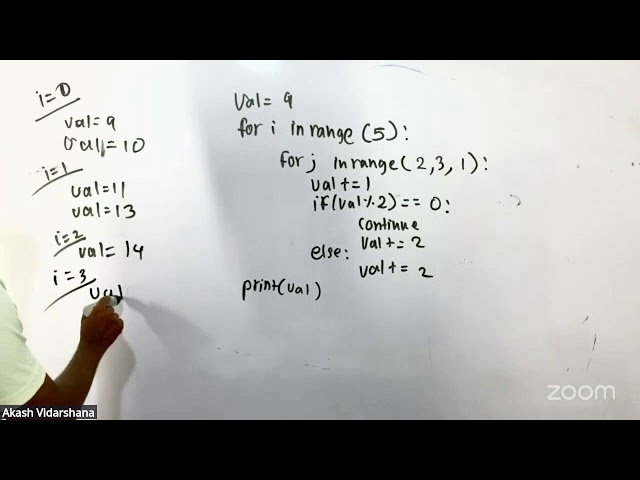 i=0
val=9
val=10
i=1
val=11
val=13
i=2
val=14
i=3
val
val= 9
for i in range (5):
for j in range( 2,3, 1):
val+=1
if(val%2)==0:
continue
val+=2
else:
val+= 2
print(val)
zoom
Akash Vidarshana